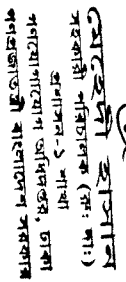 (মেহেদী হাসান)
সহকারী পরিচালক (চঃ দাঃ)
প্রশাসন-১ শাখা
গণযোগাযোগ অধিদপ্তর, ঢাকা
গণপ্রজাতন্ত্রী বাংলাদেশ সরকার